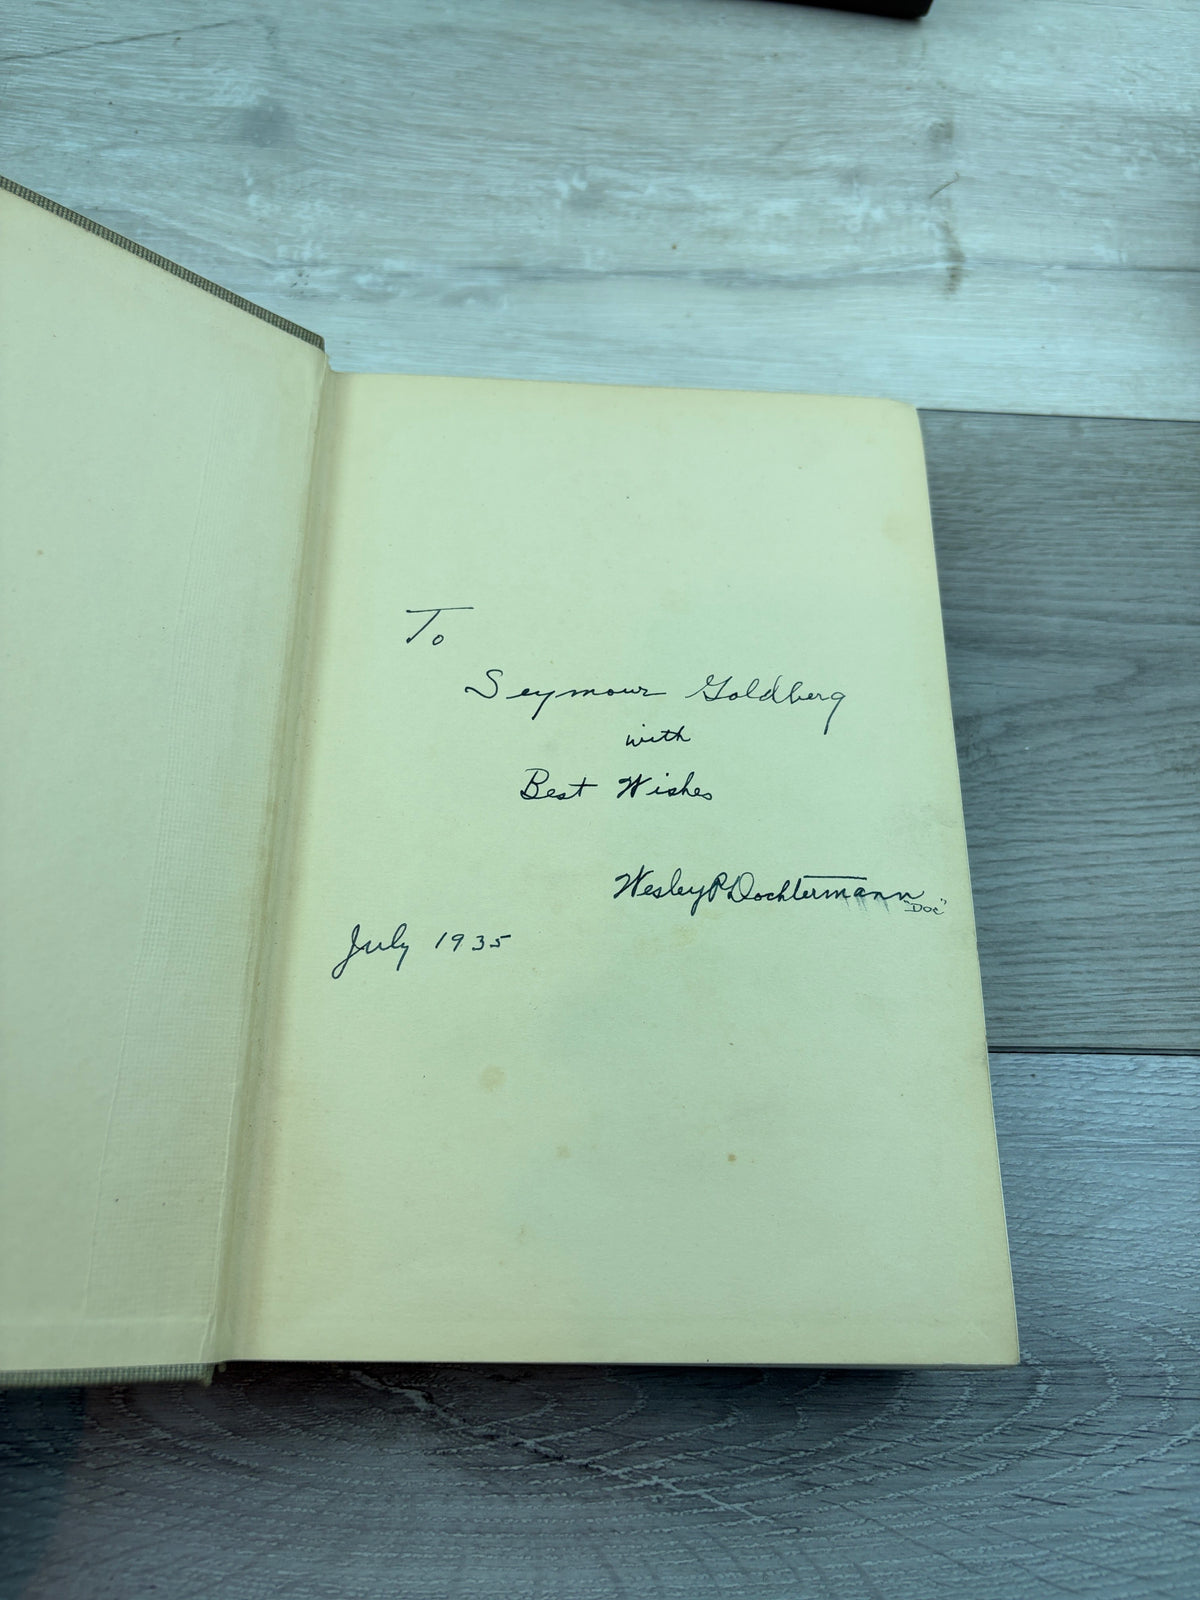 To
Seymour Goldberg
with
Best Wishes
Wesley P. Dochtermann
"Doc"
July 1935